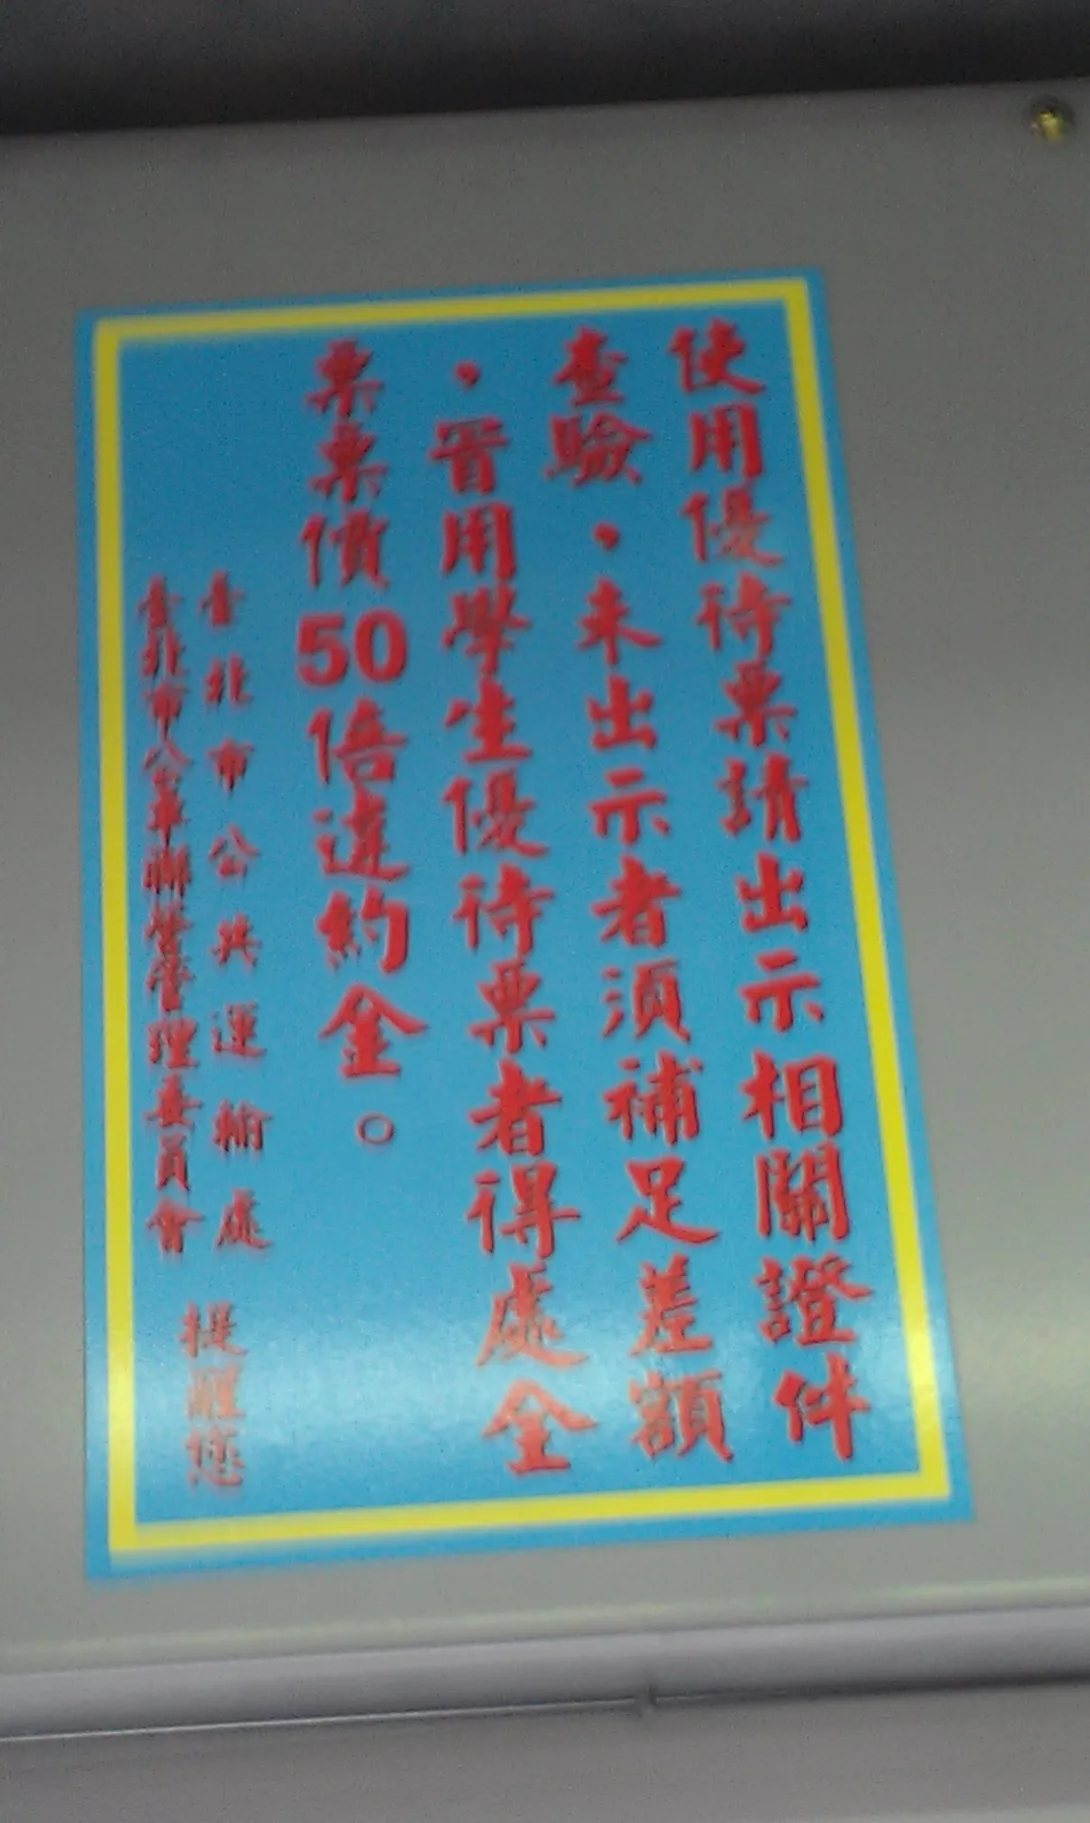 使用優待票請出示相關證件
查驗，未出示者須補足差額
，冒用學生優待票者得處全
票票價50倍違約金。
臺北市公共運輸處
臺北市公車聯營管理委員會
提醒您